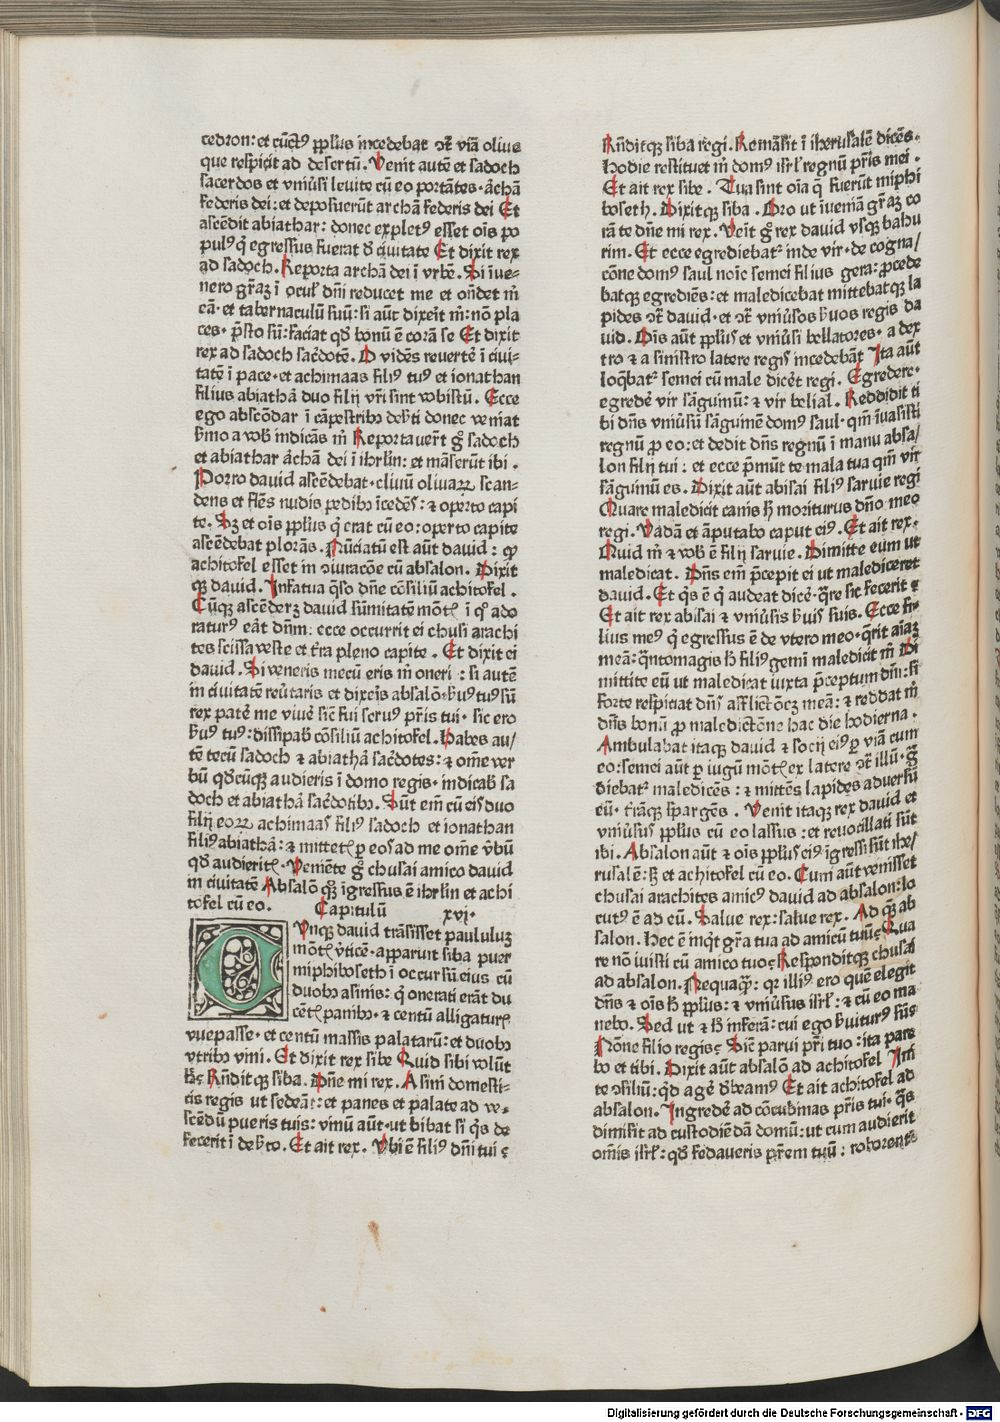 cedron: et cūctꝰ pplus incedebat ↄtͣ viā oliue
que respicit ad desertū. Venit autē et sadoch
sacerdos et vniūsi leuite cū eo portātes archā
federis dei: et deposuerūt archā federis dei Et
ascēdit abiathar: donec expletꝰ esset ois po
pulꝰ q̇ egressus fuerat d̄ ciuitate Et dixit rex
ad sadoch. Reporta archā dei ī vrbē. Si īue-
nero gr̄aʒ ī ocul̓ dn̄i reducet me et on̄det m̄
eā et tabernaculū suū: si aūt dixeīt m̄: nō pla
ces. p̄sto sū: faciat qd̓ bonū ē corā se Et dixit
rex ad sadoch sac̓dotē. O vidēs reuertē ī ciui-
tatē ī pace et achimaas filiꝰ tuꝰ et ionathan
filius abiathā duo filij vr̄i sint vobiscū. Ecce
ego abscōdar ī cāpestribꝰ deb̓ti donec veniat
ẜmo a vob̓ indicās m̄ Reportauer̄t gͦ sadoch
et abiathar archā dei ī ihrl̄m: et māserūt ibi.
Porro dauid ascēdebat cliuū oliuaꝝ scan-
dens et flēs nudis pedibꝰ īcedēs: ⁊ operto capi
te. Sʒ et ois pplus q̇ erat cū eo: operto capite
ascēdebat plorās. Nūciatū est aūt dauid: ꝙ
achitofel esset in ↄiuracōne cū absalon. Dixit
qʒ dauid. Infatua q̄so dn̄e cōsiliū achitofel.
Cūqʒ ascēderʒ dauid sūmitatē mōtꝭ ī qͦ ado
raturꝰ eāt dn̄m: ecce occurrit ei chusi arachi
tes scissa veste et tr̄a pleno capite. Et dixit ei
dauid. Si veneris mecū eris m̄ oneri: si autē
in ciuitatē reūtaris et dixeīs absalō ẜuꝰ tuꝰ sū
rex patē me viuē sic̄ fui seruꝰ pr̄is tui sic ero
ẜuꝰ tuꝰ: dissipab̓ cōsiliū achitofel. Habes au/
tē tecū sadoch ⁊ abiathā sac̓dotes: ⁊ om̄e ver
bū qd̓cūqʒ audieris ī domo regis indicab̓ sa
doch et abiathā sac̓dotibꝰ. Sūt em̄ cū eis duo
filij eoꝝ achimaas filiꝰ sadoch et ionathan
filiꝰ abiathā: ⁊ mittetꝭ ꝑ eos ad me om̄e v̓bū
qd̓ audieritꝭ. Veniēte gͦ chusai amico dauid
in ciuitatē Absalō qͦʒ īgressus ē ihrl̄m et achi
tofel cū eo. Capitulū xvi.
CVnqʒ dauid trāsisset paululuʒ
mōtꝭ v̓ticē apparuit siba puer
miphiboseth ī occursū eius cū
duobꝰ asinis: q̇ onerati erāt du
cētꝭ panibꝰ ⁊ centū alligaturꝭ
vuepasse et centū massis palatarū: et duobꝰ
vtribꝰ vini. Et dixit rex sibe Quid sibi volūt
h̄? Rn̄dit qʒ siba. Dn̄e mi rex. Asini domesti-
cis regis ut sedeāt: et panes et palate ad ve-
scēdū pueris tuis: vinū aūt ut bibat si q̇s de
fecerit ī deẜto. Et ait rex. Vbi ē filiꝰ dn̄i tui?
Rn̄ditqʒ siba regi. Remāsit ī iherusalē dicēs.
Hodie restituet m̄ domꝰ isrl̓ regnū pr̄is mei.
Et ait rex sibe. Tua sint oīa q̄ fuerūt miphi
boseth. Dixitqʒ siba. Oro ut īueniā gr̄aʒ co
rā te dn̄e mi rex. Veīt gͦ rex dauid vsqʒ bahu
rim. Et ecce egrediebatꝰ inde vir de cogna/
cōne domꝰ saul noīe semei filius gera: ꝓcede
batqʒ egrediēs: et maledicebat mittebatqʒ la
pides ↄtͣ dauid et ↄtͣ vniūsos ẜuos regis da
uid. Ois aūt pplus et vniūsi bellatores a dex
tro ⁊ a sinistro latere regis incedebāt Ita aūt
loq̄batꝰ semei cū male dicēt regi. Egredere
egredē vir sāguinū: ⁊ vir belial. Reddidit ti
bi dn̄s vniūsū sāguinē domꝰ saul qm̄ īuasisti
regnū ꝓ eo: et dedit dn̄s regnū ī manu absa/
lon filij tui: et ecce p̄mūt te mala tua qm̄ vir
sāguinū es. Dixit aūt abisai filiꝰ saruie regi
Quare maledicit canis h̓ moriturus dn̄o meo
regi. Vadā et āputabo caput eiꝰ. Et ait rex.
Quid m̄ ⁊ vob̓ ē filij saruie. Dimitte eum ut
maledicat. Dn̄s em̄ p̄cepit ei ut malediceret
dauid. Et q̇s ē q̇ audeat dicē q̄re sic fecerit?
Et ait rex abisai ⁊ vniūsis ẜuis suis. Ecce fi-
lius meꝰ q̇ egressus ē de vtero meo q̄rit aīaʒ
meā: q̄ntomagis h̓ filiꝰ gemi maledicit m̄ Di
mittite eū ut maledicat iuxta p̄ceptum dn̄i: si
forte respiciat dn̄s afflictōeʒ meā: ⁊ reddat m̄
dn̄s bonū ꝓ maledictōne hac die hodierna.
Ambulabat itaqʒ dauid ⁊ socij eiꝰ ꝑ viā cum
eo: semei aūt ꝑ iugū mōtꝭ ex latere ↄtͣ illū g̓
diebatꝰ maledicēs: ⁊ mittēs lapides aduersū
eū tr̄āqʒ spargēs. Venit itaqʒ rex dauid et
vniūsus pplus cū eo lassus: et refocillati sūt
ibi. Absalon aūt ⁊ ois pplus eiꝰ īgressi sūt ihe/
rusalē: ẜʒ et achitofel cū eo. Cum aūt venisset
chusai arachites amicꝰ dauid ad absalon: lo
cutꝰ ē ad eū. Salue rex: salue rex. Ad qͣʒ ab
salon. Hec ē inq̇t gr̄a tua ad amicū tuū? Qua
re nō iuisti cū amico tuo? Responditqʒ chusai
ad absalon. Nequaqͣ: qr illiꝰ ero quē elegit
dn̄s ⁊ ois h̓ pplus: ⁊ vniūsus isrl̓: ⁊ cū eo ma
nebo. Sed ut ⁊ h̓ inferā: cui ego ẜuiturꝰ sūs
Nōne filio regis? Sic̄ parui pr̄i tuo: ita pare
bo et tibi. Dixit aūt absalō ad achitofel Ini
te ↄsiliū: qd̓ agē d̓beamꝰ Et ait achitofel ad
absalon. Ingredē ad cōcubinas pr̄is tui q̄s
dimisit ad custodiēdā domū: ut cum audierit
omīs isrl̓: qd̓ fedaueris pr̄em tuū: roborent̓
Digitalisierung gefördert durch die Deutsche Forschungsgemeinschaft - DFG